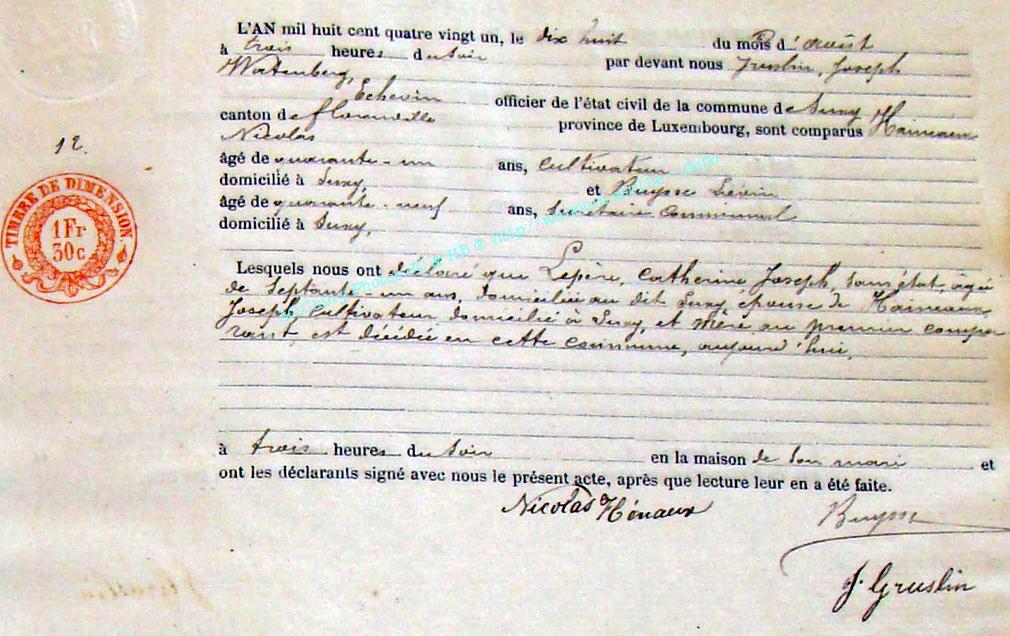 L'AN mil huit cent quatre vingt un, le dix huit du mois d'août
à trois heures du soir par devant nous Gruslin, Joseph
Watenberg,
Echevin officier de l'état civil de la commune de Sugny
canton de florenville province de Luxembourg, sont comparus Haineaux
Nicolas
âgé de quarante-un ans, cultivateur
domicilié à Sugny, et Buysse Livin
âgé de quarante-neuf ans, Secrétaire Communal
domicilié à Sugny,
Lesquels nous ont déclaré que Lepère, Catherine Joseph, sans état, agée
de Septante-un ans, domiciliée au dit Sugny épouse de Haineaux
Joseph, Cultivateur domicilié à Sugny, et mère au premier compa
rant, est décédée en cette commune, aujourd'hui,
à trois heures du Soir en la maison de son mari et
ont les déclarants signé avec nous le présent acte, après que lecture leur en a été faite.
Nicolas Hénaux Buysse
J. Gruslin
12.
TIMBRE DE DIMENSION
1 Fr
30 c